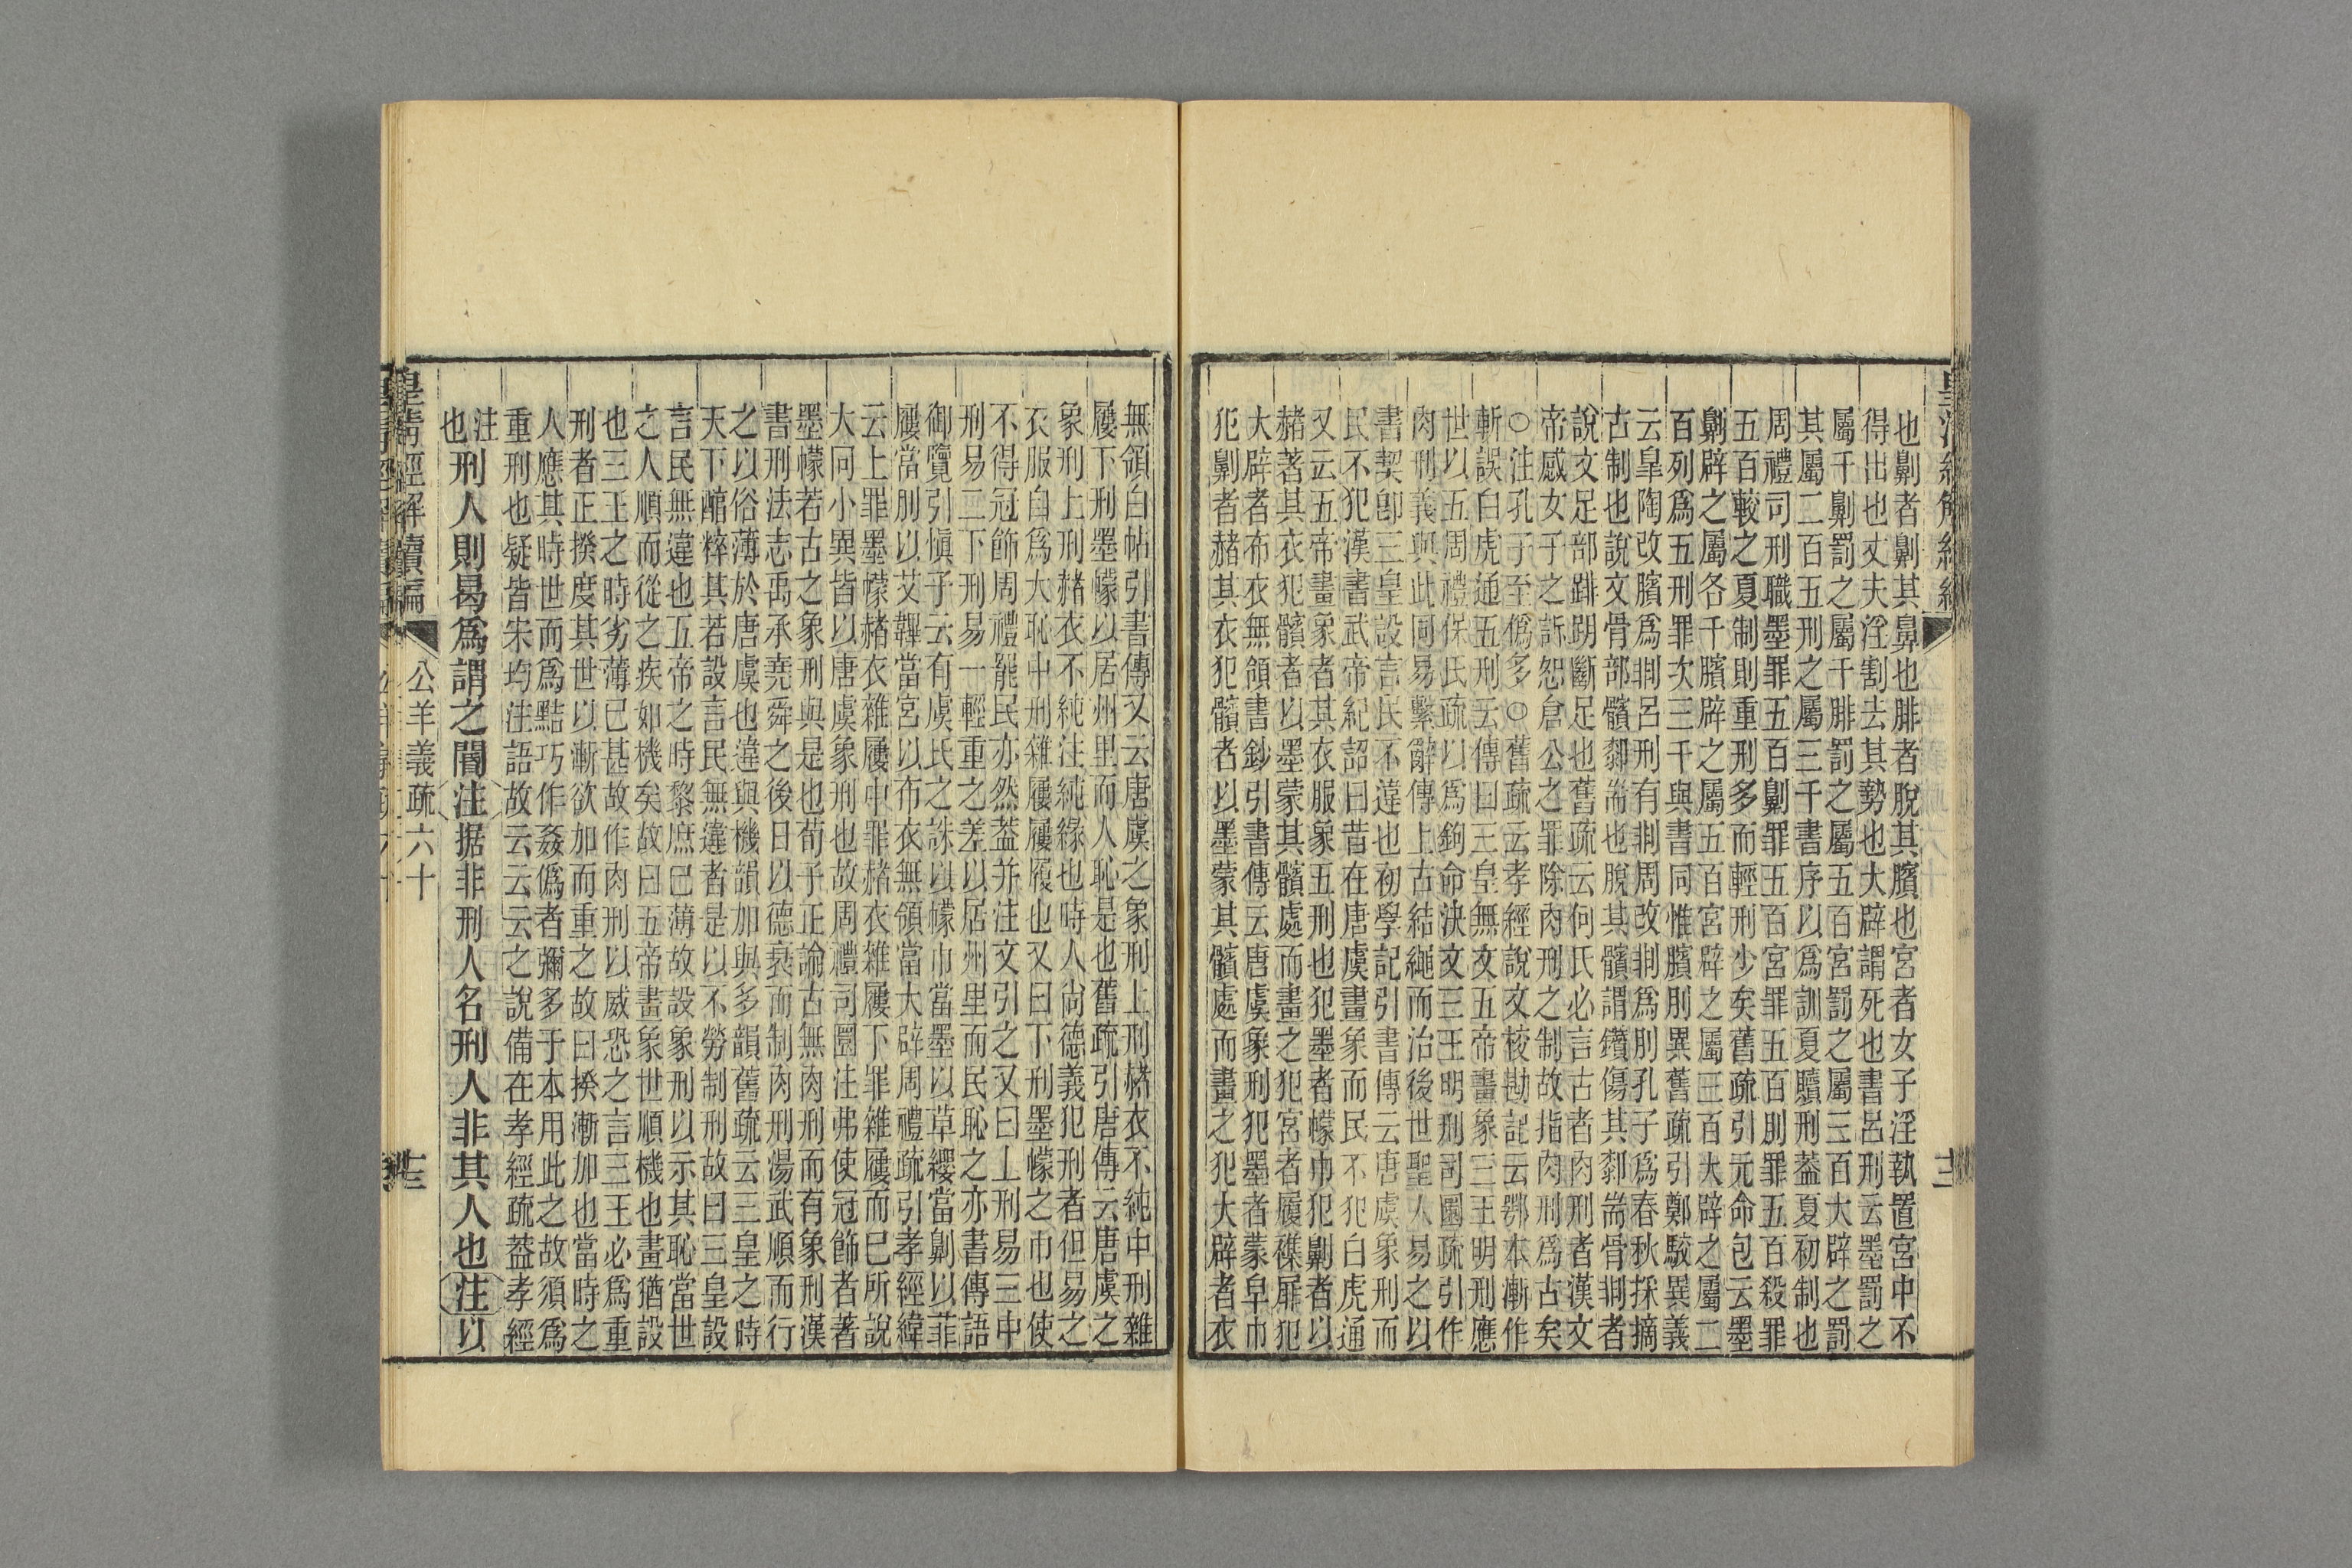 也劓者劓其鼻也腓者脫其臏也宮者女子淫執置宮中不
得出也丈夫淫割去其勢也大辟謂死也書呂刑云墨罰之
屬千劓罰之屬千腓罰之屬五百宮罰之屬三百大辟之罰
其屬二百五刑之屬三千書序以爲訓夏贖刑葢夏初制也
周禮司刑職墨罪五百劓罪五百宮罪五百刖罪五百殺罪
五百較之夏制則重刑多而輕刑少矣舊疏引元命包云墨
劓辟之屬各千臏辟之屬五百宮辟之屬三百大辟之屬二
百列爲五刑罪次三千與書同惟臏刖異舊疏引鄭駮異義
云皐陶改臏爲剕呂刑有剕周改剕爲刖孔子爲春秋採摘
古制也說文骨部髕厀耑也脫其髕謂鑽傷其厀耑骨剕者
說文足部跀斷足也舊疏云何氏必言古者肉刑者漢文
帝感女子之訴恕倉公之罪除肉刑之制故指肉刑爲古矣
○注孔子至僞多○舊疏云孝經說文校勘記云鄂本漸作
斬誤白虎通五刑云傳曰三皇無文五帝畫象三王明刑應
世以五周禮保氏疏以爲鉤命決文三王明刑司圜疏引作
肉刑義與此同易繫辭傳上古結繩而治後世聖人易之以
書契卽三皇設言民不違也初學記引書傳云唐虞象刑而
民不犯漢書武帝紀詔曰昔在唐虞畫象而民不犯白虎通
又云五帝畫象者其衣服象五刑也犯墨者幪巾犯劓者以
赭著其衣犯髕者以墨蒙其髕處而畫之犯宮者履襍扉犯
大辟者布衣無領書鈔引書傳云唐虞象刑犯墨者蒙皁巾
犯劓者赭其衣犯髕者以墨蒙其髕處而畫之犯大辟者衣
無領白帖引書傳又云唐虞之象刑上刑赭衣不純中刑雜
屨下刑墨幪以居州里而人恥是也舊疏引唐傳云唐虞之
象刑上刑赭衣不純注純緣也時人尚德義犯刑者但易之
衣服自爲大恥中刑雜屨屨履也又曰下刑墨幪之巾也使
不得冠飾周禮罷民亦然葢并注文引之又曰上刑易三中
刑易二下刑易一輕重之差以居州里而民恥之亦書傳語
御覽引愼子云有虞氏之誅以幪巾當墨以草纓當劓以菲
屨當刖以艾韠當宮以布衣無領當大辟周禮疏引孝經緯
云上罪墨幪赭衣雜屨中罪赭衣雜屨下罪雜屨而已所說
大同小異皆以唐虞象刑也故周禮司圜注弗使冠飾者著
墨幪若古之象刑與是也荀子正論古無肉刑而有象刑漢
書刑法志禹承堯舜之後自以德衰而制肉刑湯武順而行
之以俗薄於唐虞也違與機韻加與多韻舊疏云三皇之時
天下醕粹其若設言民無違者是以不勞制刑故曰三皇設
言民無違也五帝之時黎庶已薄故設象刑以示其恥當世
之人順而從之疾如機矣故曰五帝畫象世順機也畫猶設
也三王之時劣薄已甚故作肉刑以威恐之言三王必爲重
刑者正揆度其世以漸欲加而重之故曰揆漸加也當時之
人應其時世而爲黠巧作姦僞者彌多于本用此之故須爲
重刑也疑皆宋均注語故云云云之說備在孝經疏葢孝經
注
也刑人則曷爲謂之閽注据非刑人名刑人非其人也注以
皇清經解續編 公羊義疏六十